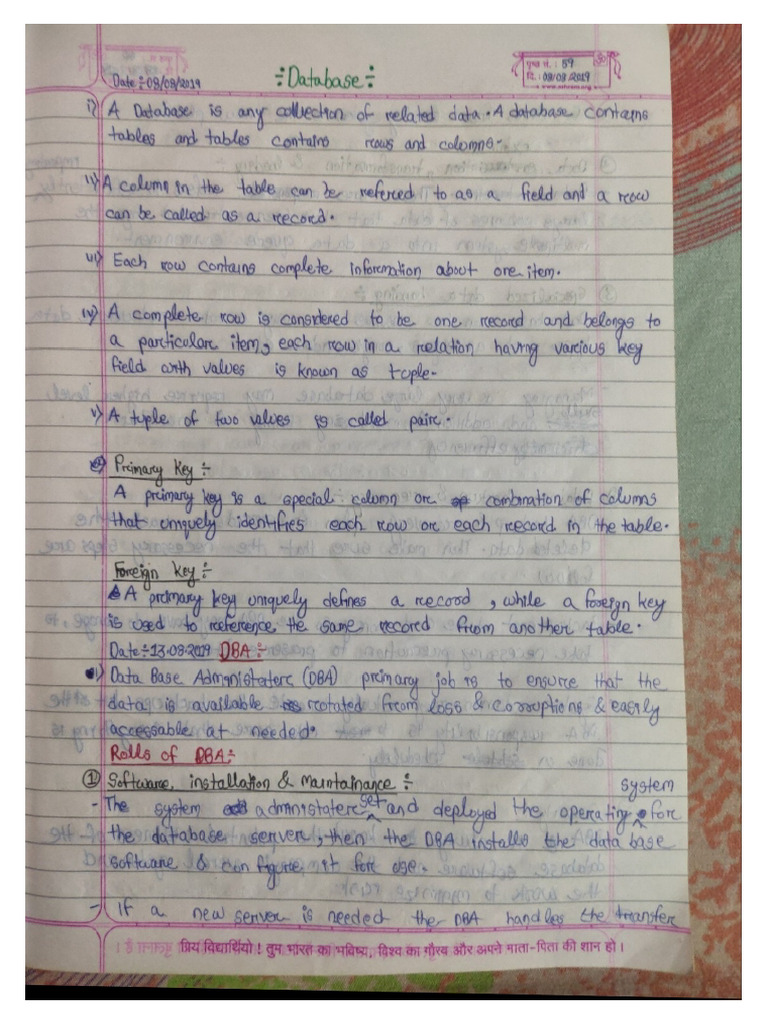 Date ÷ 08/08/2019
÷ Database ÷
पृष्ठ सं. : 59
दि. : 08/08 2019
i) A Database is any collection of related data. A database contains
tables and tables contains rows and columns.
ii) A column in the table can be refered to as a field and a row
can be called as a record.
iii) Each row contains complete information about one item.
iv) A complete row is considered to be one record and belongs to
a particular item, each row in a relation having various key
field with values is known as tuple.
v) A tuple of two values is called pair.
Primary Key ÷
A primary key is a special column or combination of columns
that uniquely identifies each row or each record in the table.
Foreign Key ÷
A primary key uniquely defines a record, while a foreign key
is used to reference the same record from another table.
Date ÷ 13-08-2019 DBA ÷
Data Base Administater (DBA) primary job is to ensure that the
data is available rotated from loss & corruptions & easily
accessable at needed.
Rolls of DBA ÷
① Software, installation & maintainance ÷
system
- The system administater set and deployed the operating for
the database server, then the DBA installs the data base
software & configure it for use.
- If a new server is needed the DBA handles the transfer
प्रिय विद्यार्थियो ! तुम भारत का भविष्य, विश्व का गौरव और अपने माता-पिता की शान हो ।